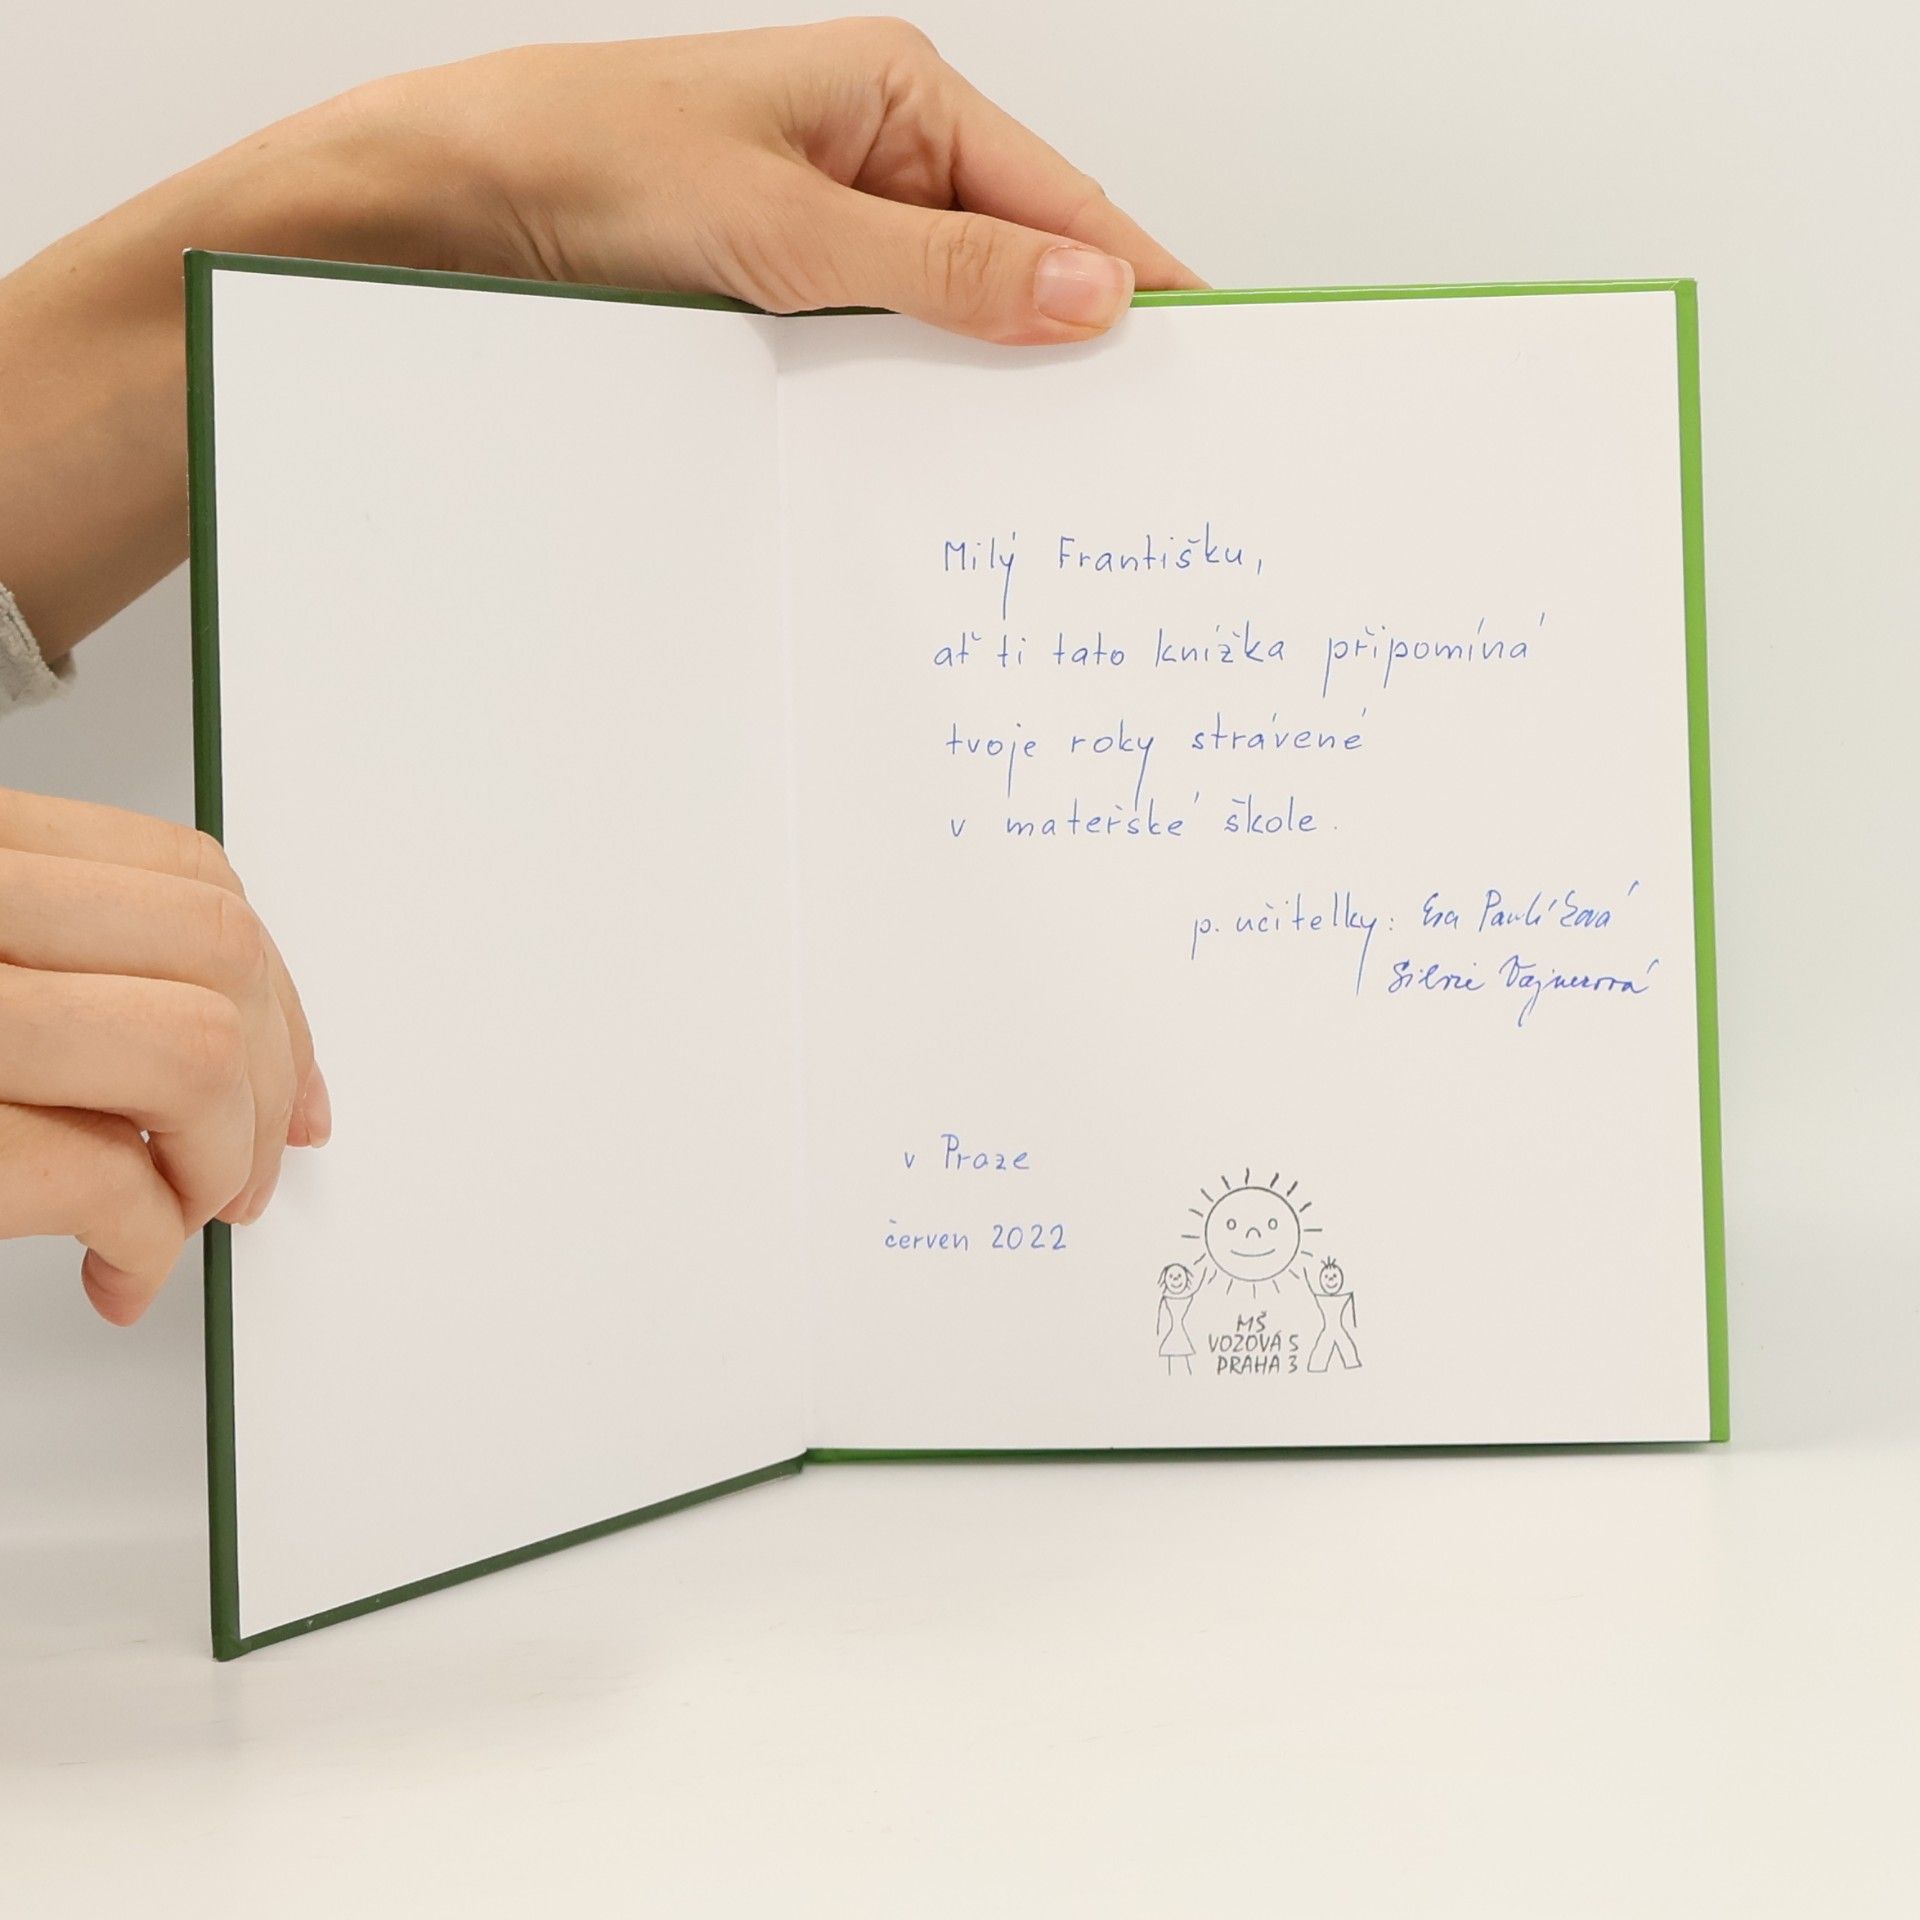 Milý Františku,
ať ti tato knížka připomíná
tvoje roky strávené
v mateřské škole.
p. učitelky: Eva Pavlíková
Silvie Vajnerová
v Praze
červen 2022
MŠ
VOZOVÁ 5
PRAHA 3